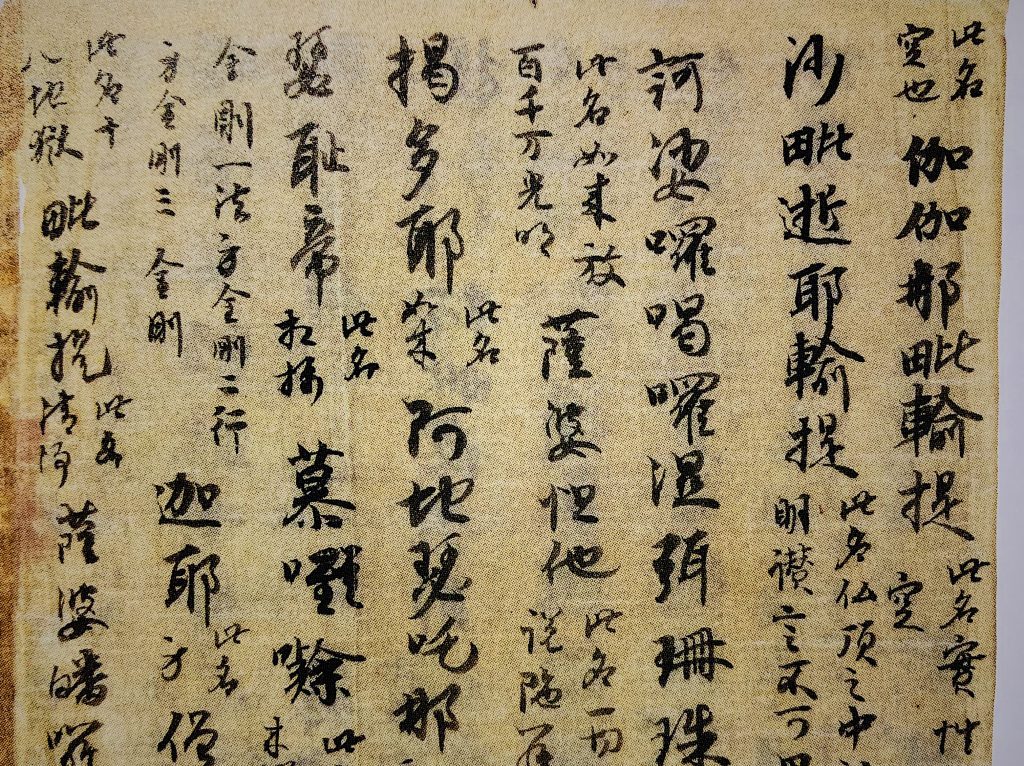 此名
空也 伽伽那毗輸提 此名實性
空
沙毗逝耶輸提 此名仏頂之中
明讃言不可
訶娑囉喝囉湿弭珊珠
此名如来放
百千万光明 薩婆怛他 此名一切
揭多耶 此名
如来 阿地瑟吒那
瑟耻帝 此名
慕
金剛一法方金剛二行
方金剛三 金剛 迦耶 此名
方 僧
此名十
八地獄 毗輸提 此名
清净 薩婆皤囉